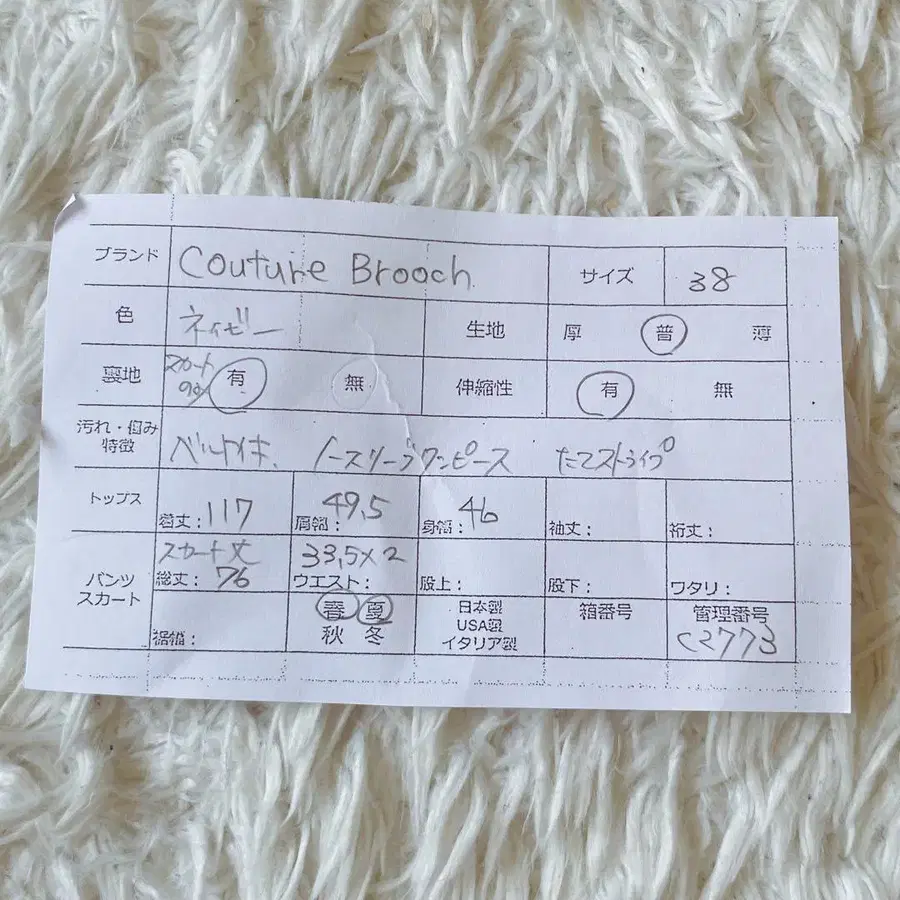 ブランド Couture Brooch サイズ 38
色 ネイビー 生地 厚 普 薄
裏地 スカートのみ 有 無 伸縮性 有 無
汚れ・傷み
特徴 ベルト付き、 ノースリーブワンピース たてストライプ
トップス 着丈:117 肩幅:49,5 身幅:46 袖丈: 裄丈:
パンツ
スカート スカート丈
総丈:76 33,5×2
ウエスト: 股上: 股下: ワタリ:
裾幅: 春 夏
秋 冬 日本製
USA製
イタリア製 箱番号 管理番号
C2773